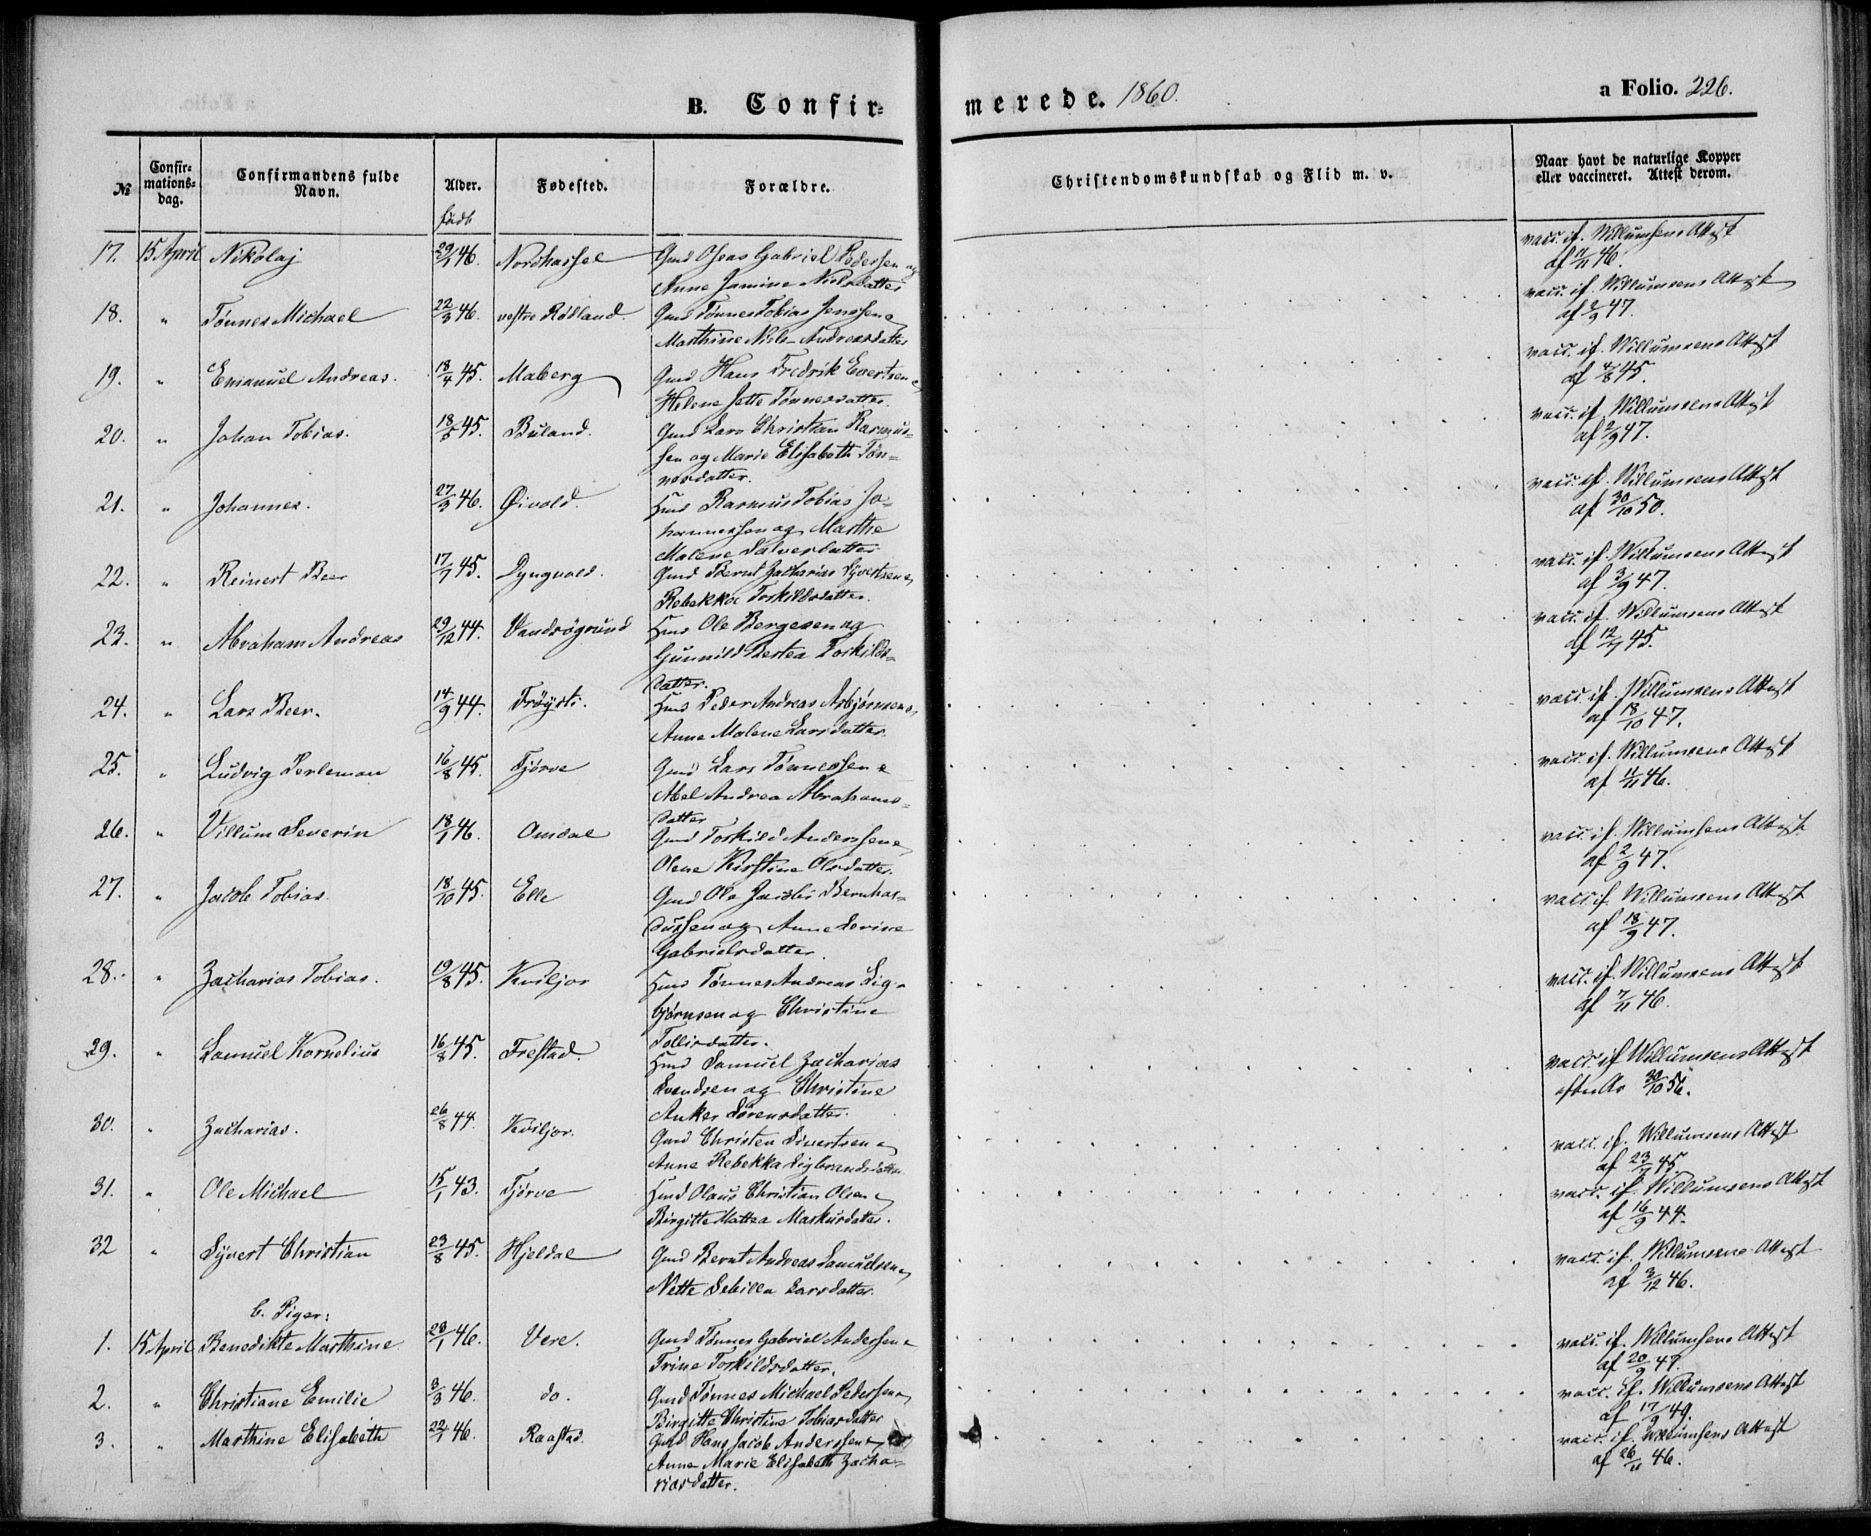 B. Confir-
merede. 1860.
a Folio. 226.
No
Confir-
mations-
dag.
Confirmandens fulde
Navn.
Alder.
født
Fødested.
Forældre.
Christendomskundskab og Flid m. v.
Naar havt de naturlige Kopper
eller vaccineret. Attest derom.
17. 15 April Nikolaj 29/1 46. Nordhassel Gmd Oseas Gabriel Pedersen og
Anne Jamine Nielsdatter
vacc. if. Willumsens Attest
af 11/11 46.
18. " Tönnes Michael 22/3 46. vestre Rødland. Gmd Tönnes Tobias Jenssen e
Marthine Niels-Andreasdatter
vacc. if. Willumsens Attest
af 2/9 47.
19. " Emanuel Andreas. 18/4 45. Maberg Gmd Hans Fredrik Evertsen e
Helene Jette Tönnesdatter.
vacc. if. Willumsens Attest
af 4/8 45.
20. " Johan Tobias. 18/5 45. Buland. Gmd Lars Christian Rasmus-
sen og Marie Elisabeth Tön-
nesdatter.
vacc. if. Willumsens Attest
af 2/9 47.
21. " Johannes. 27/3 46. Øivold. Hmd Rasmus Tobias Jo-
hannessen og Marthe
Malene Salvesdatter
vacc. if. Willumsens Attest
af 30/10 50.
22. " Reinert Beer 17/7 45. Dyngvold. Gmd Bernt Zacharias Syvertsen e
Rebekka Torkildsdatter.
vacc. if. Willumsens Attest
af 3/9 47.
23. " Abraham Andreas 29/12 44. Vandsøgrund Hmd Ole Bergesen og
Gunnild Bertea Torkilds-
datter.
vacc. if. Willumsens Attest
af 12/7 45.
24. " Lars Beer. 14/9 44. Frøysti. Hmd Peder Andreas Asbjørnsen e
Anne Malene Larsdatter.
vacc. if. Willumsens Attest
af 18/10 47.
25. " Ludvig Perleman 16/8 45. Tjørve Gmd Lars Tönnessen e
Abel Andrea Abrahams-
datter
vacc. if. Willumsens Attest
af 11/11 46.
26. " Villum Severin 18/1 46. Omdal Gmd Torkild Anderssen e
Olene Kirstine Olsdatter.
vacc. if. Willumsens Attest
af 2/9 47.
27. " Jacob Tobias. 18/10 45. Elle Gmd Ole Jacobi Bernhar-
dussen og Anne Sevine
Gabrielsdatter.
vacc if. Willumsens Attest
af 18/9 47.
28. " Zacharias Tobias. 19/8 45. Kviljor Hmd Tönnes Andreas Sig-
bjørnsen og Christine
Tollisdatter.
vacc. if. Willumsens Attest
af 7/11 46.
29. " Samuel Kornelius 16/8 45. Frestad. Hmd Samuel Zacharias
Svendsen og Christine
Anker Sörensdatter.
vacc. if Willumsens Attest
30/10 56.
30. " Zacharias. 26/8 44. Kviljor. Gmd Christen Sivertsen e
Anne Rebekka Sigbrandsdatter
vacc. if. Willumsens Attest
af 23/7 45
31. " Ole Michael 15/1 43. Tjørve Hmd Olaus Christian Olsen e
Birgitte Mattea Markusdatter.
vacc. if. Willumsens Attest
af 16/9 44.
32 " Syvert Christian 23/8 45. Hjeldal Gmd Bernt Andreas Samuelsen e
Nette Sebilla Larsdatter.
vacc. if. Willumsens Attest
af 3/12 46.
b. Piger:
1. 15 April Benedikte Marthine 28/1 46. Vere. Gmd Tönnes Gabriel Andersen e
Trine Torkildsdatter.
vacc. if. Willumsens Attest
af 20/9 47.
2. " Christiane Emilie 3/3 46. do. Gmd Tönnes Michael Pedersen e
Birgitte Christine Tobiasdatter
vacc. if. Willumsens Attest
af 17/9 49.
3. " Marthine Elisabeth 22/1 46. Raastad. Gmd Hans Jacob Anderssen e
Anne Marie Elisabeth Zacha-
riasdatter.
vacc. if. Willumsens Attest
af 26/11 46.